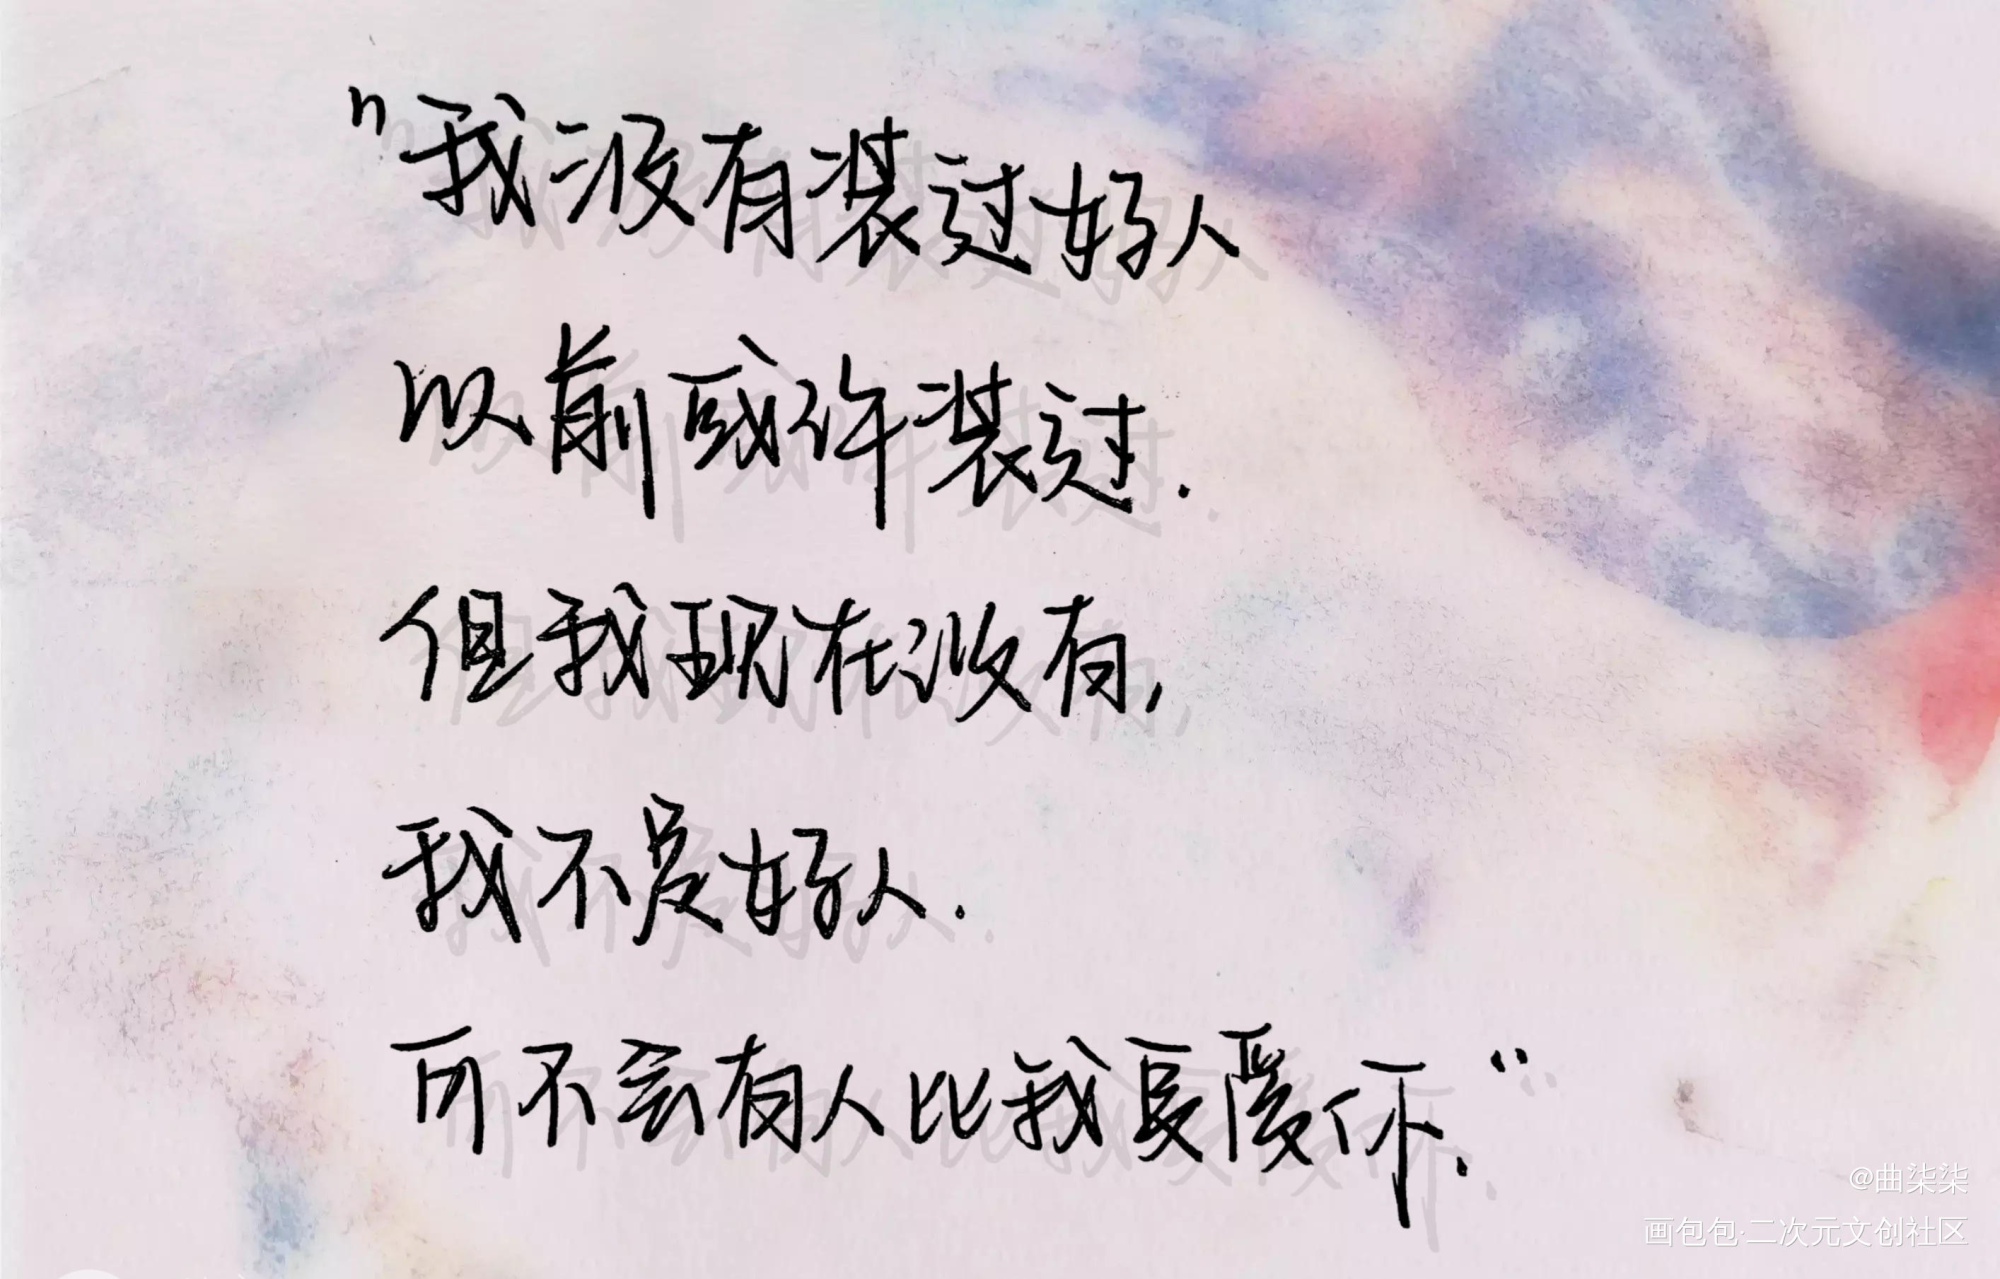 "我没有装过好人
以前或许装过.
但我现在没有,
我不是好人.
可不会有人比我更爱你."
@曲柒柒
画包包·二次元文创社区